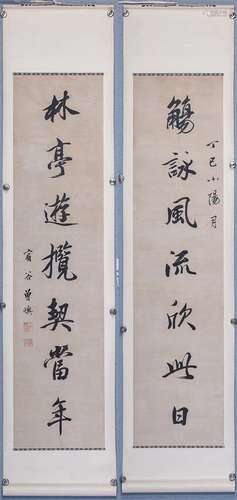 觴詠風流欣此日
丁巳小陽月
林亭遊攬契當年
賓谷曾燠